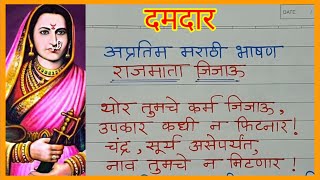 दमदार
DATE
अप्रतिम मराठी भाषण
राजमाता जिजाऊ
थोर तुमचे कर्म जिजाऊ,
उपकार कधी न फिटनार!
चंद्र, सूर्य असेपर्यंत,
नाव तुमचे न मिटणार!